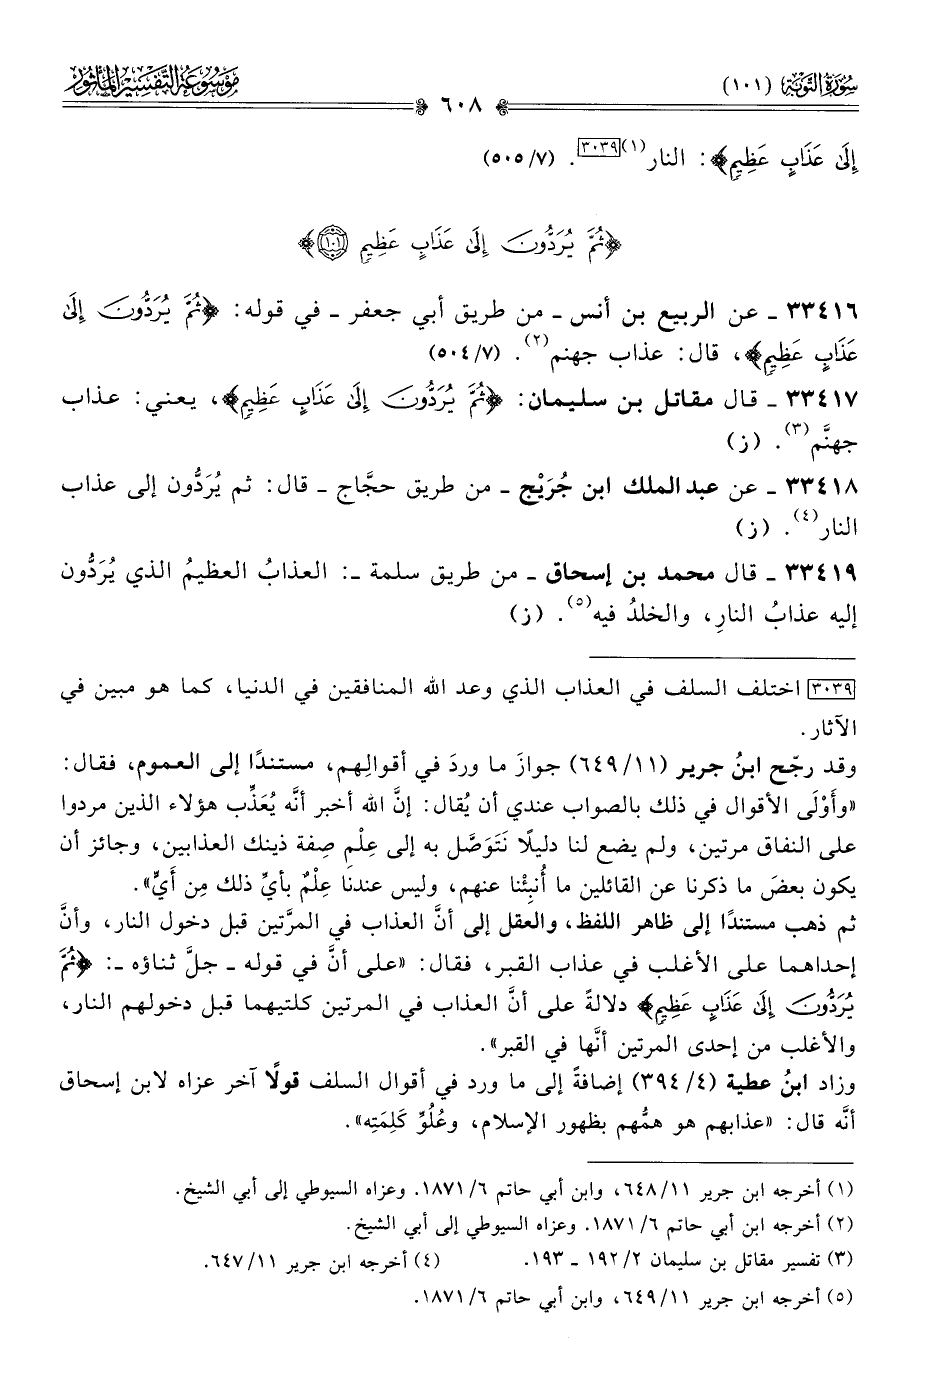 سُورَةُ التَّوْبَة (١٠١)
٦٠٨
مَوْسُوعَةُ التَّفْسِيرِ المَأْثُور
إِلَىٰ عَذَابٍ عَظِيمٍ﴾: النار(١)[٣٠٣٩]. (٧/ ٥٠٥)
﴿ثُمَّ يُرَدُّونَ إِلَىٰ عَذَابٍ عَظِيمٍ ١٠١﴾
٣٣٤١٦ ـ عن الربيع بن أنس ـ من طريق أبي جعفر ـ في قوله: ﴿ثُمَّ يُرَدُّونَ إِلَىٰ
عَذَابٍ عَظِيمٍ﴾، قال: عذاب جهنم(٢). (٧/ ٥٠٤)
٣٣٤١٧ ـ قال مقاتل بن سليمان: ﴿ثُمَّ يُرَدُّونَ إِلَىٰ عَذَابٍ عَظِيمٍ﴾، يعني: عذاب
جهنَّم(٣). (ز)
٣٣٤١٨ ـ عن عبد الملك ابن جُرَيْج ـ من طريق حجَّاج ـ قال: ثم يُرَدُّون إلى عذاب
النار(٤). (ز)
٣٣٤١٩ ـ قال محمد بن إسحاق ـ من طريق سلمة ـ: العذابُ العظيمُ الذي يُرَدُّون
إليه عذابُ النارِ، والخلدُ فيه(٥). (ز)
[٣٠٣٩] اختلف السلف في العذاب الذي وعد الله المنافقين في الدنيا، كما هو مبين في
الآثار.
وقد رجّح ابنُ جرير (١١/ ٦٤٩) جوازَ ما وردَ في أقوالِهم، مستندًا إلى العموم، فقال:
«وأَوْلَى الأقوال في ذلك بالصواب عندي أن يُقال: إنَّ الله أخبر أنَّه يُعَذِّب هؤلاء الذين مردوا
على النفاق مرتين، ولم يضع لنا دليلًا نَتَوَصَّل به إلى عِلْم صِفة ذينك العذابين، وجائز أن
يكون بعضَ ما ذكرنا عن القائلين ما أُنبِئْنا عنهم، وليس عندنا عِلْمٌ بأيِّ ذلك مِن أَيٍّ».
ثم ذهب مستندًا إلى ظاهر اللفظ، والعقل إلى أنَّ العذاب في المرَّتين قبل دخول النار، وأنَّ
إحداهما على الأغلب في عذاب القبر، فقال: «على أنَّ في قوله ـ جلَّ ثناؤه ـ: ﴿ثُمَّ
يُرَدُّونَ إِلَىٰ عَذَابٍ عَظِيمٍ﴾ دلالةً على أنَّ العذاب في المرتين كلتيهما قبل دخولهم النار،
والأغلب من إحدى المرتين أنَّها في القبر».
وزاد ابنُ عطية (٤/ ٣٩٤) إضافةً إلى ما ورد في أقوال السلف قولًا آخر عزاه لابن إسحاق
أنَّه قال: «عذابهم هو همُّهم بظهور الإسلام، وعُلُوِّ كَلِمَتِه».
(١) أخرجه ابن جرير ١١/ ٦٤٨، وابن أبي حاتم ٦/ ١٨٧١. وعزاه السيوطي إلى أبي الشيخ.
(٢) أخرجه ابن أبي حاتم ٦/ ١٨٧١. وعزاه السيوطي إلى أبي الشيخ.
(٣) تفسير مقاتل بن سليمان ٢/ ١٩٢ ـ ١٩٣. (٤) أخرجه ابن جرير ١١/ ٦٤٧.
(٥) أخرجه ابن جرير ١١/ ٦٤٩، وابن أبي حاتم ٦/ ١٨٧١.